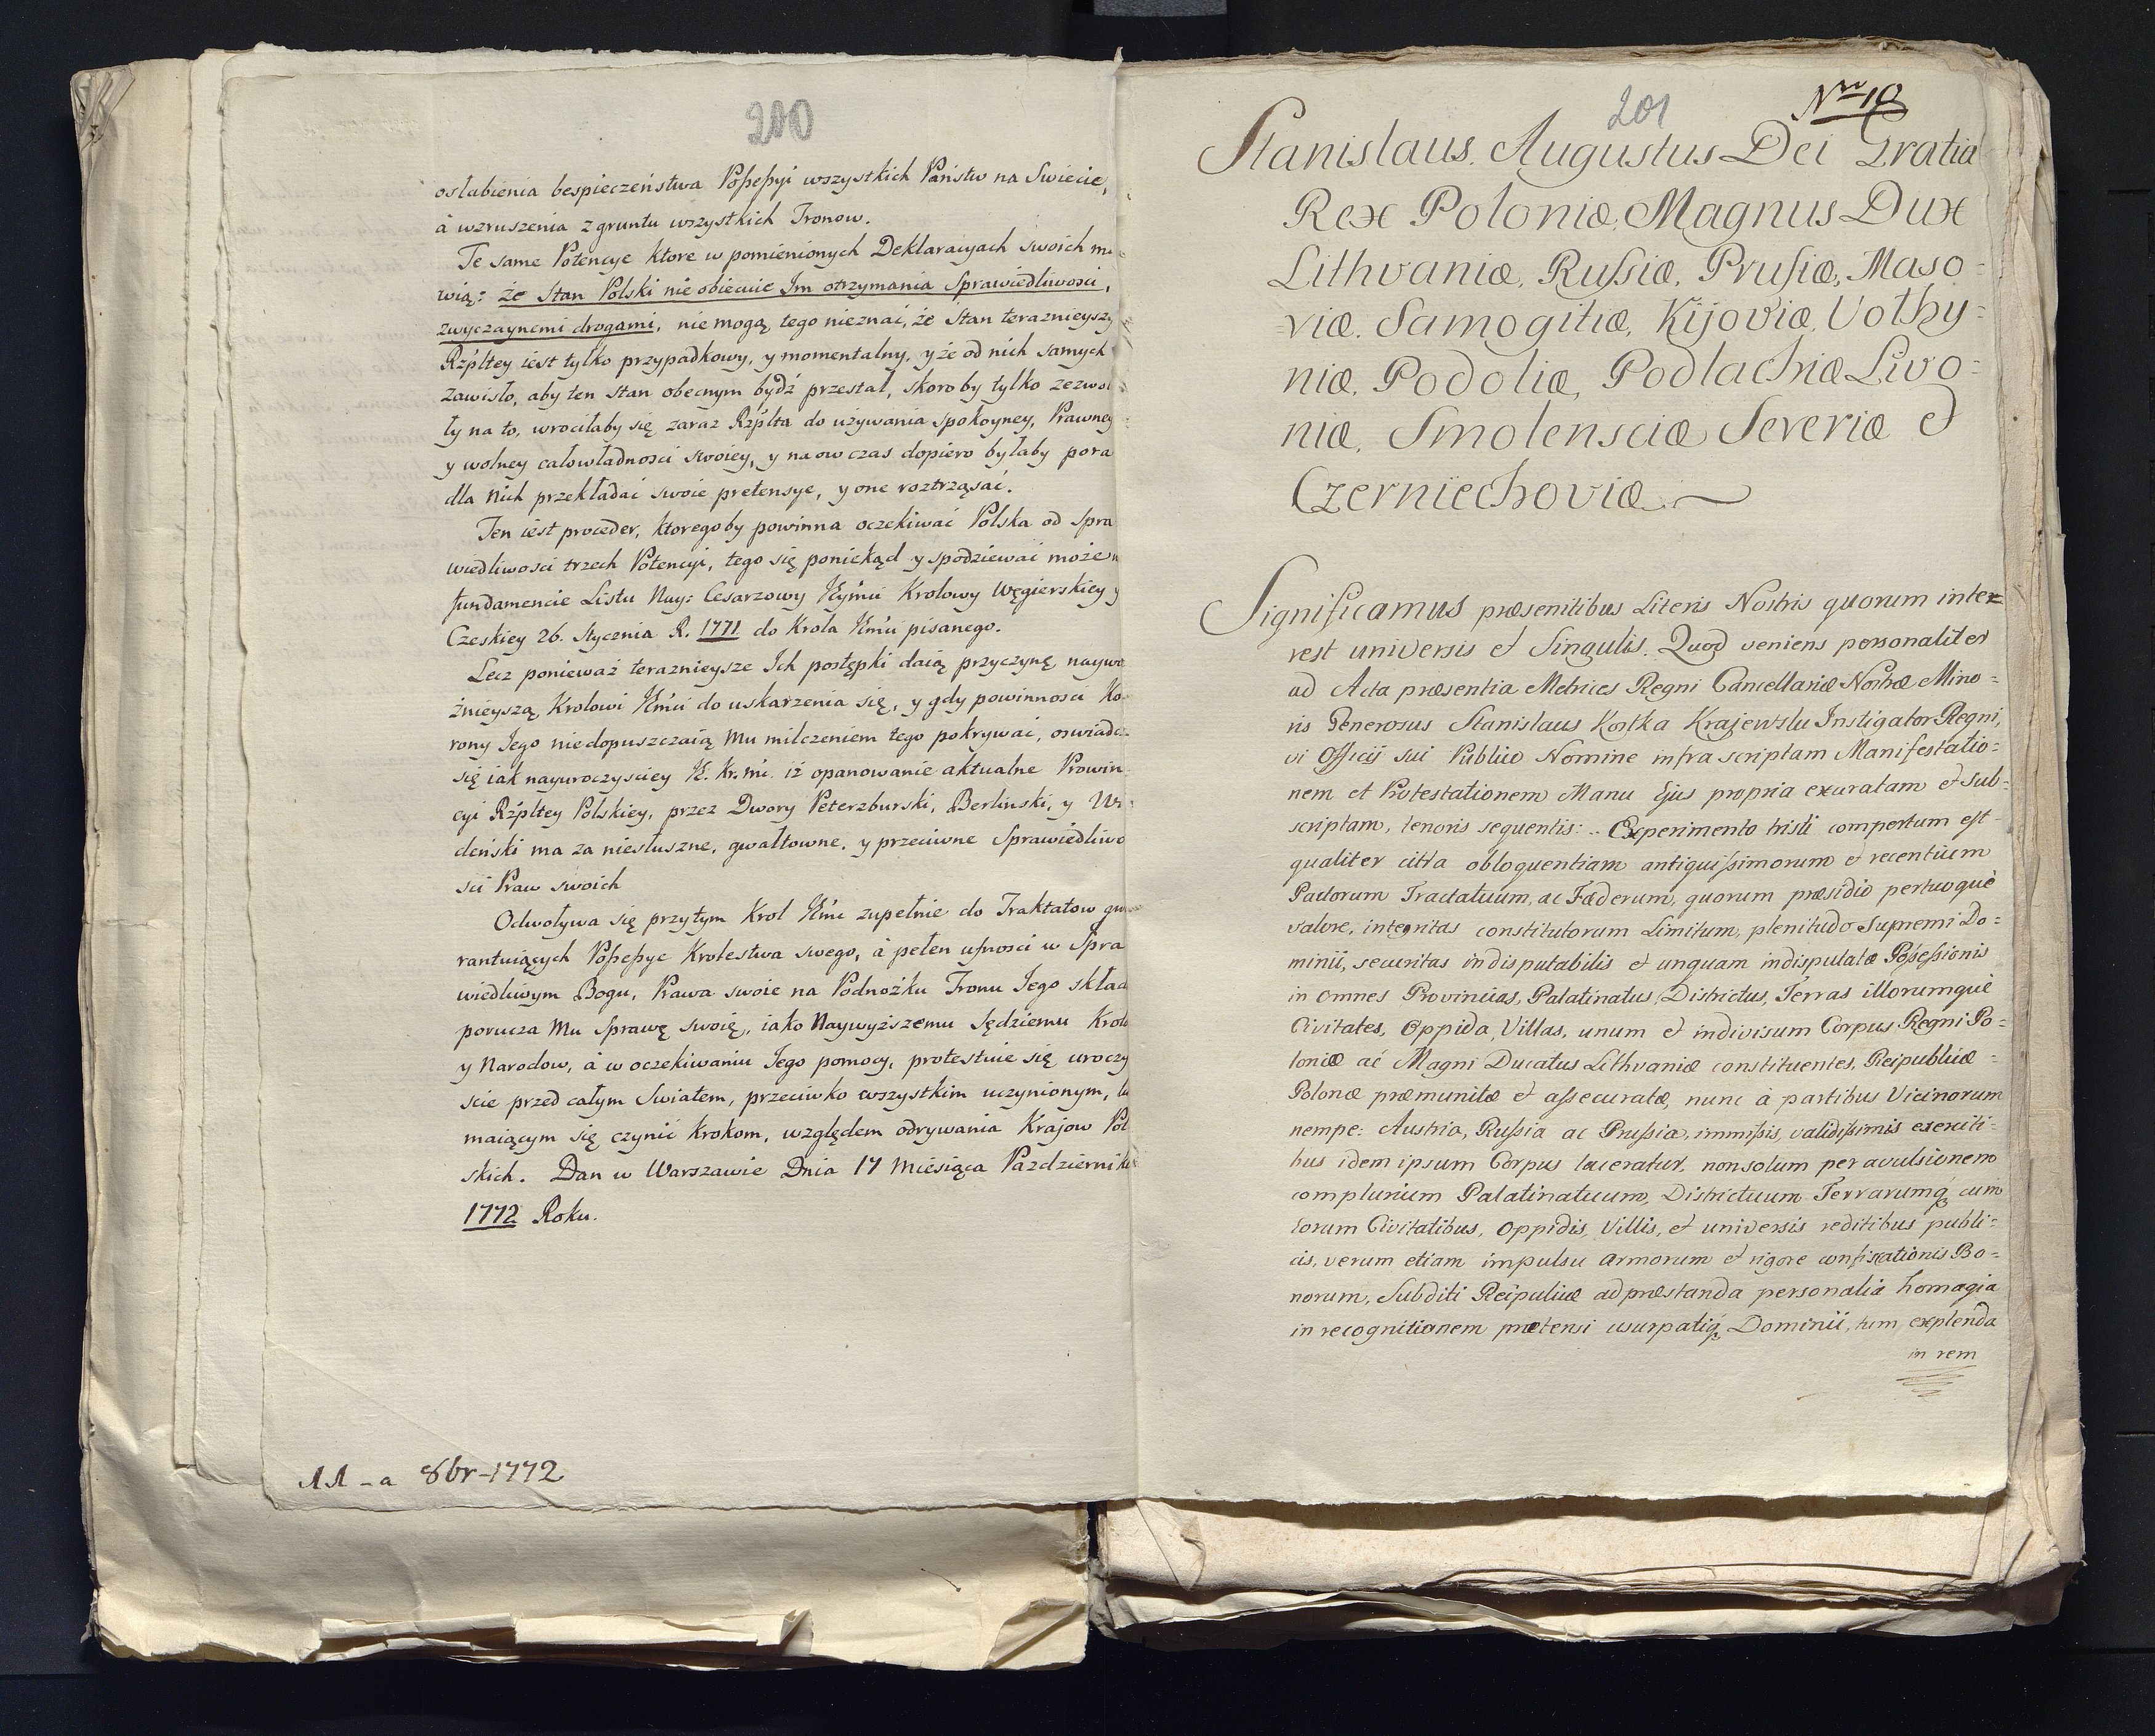 200
osłabienia bespieczeństwa Posessyi wszystkich Państw na Swiecie,
à wzruszenia z gruntu wszystkich Tronow.
Te same Potencye ktore w pomienionych Deklaracyach swoich mo
wią: że Stan Polski nie obiecuie Im otrzymania Sprawiedliwosci,
zwyczaynemi drogami, nie mogą tego nieznać, że Stan teraznieyszy
Rzpltey iest tylko przypadkowy, y momentalny, y że od nich samych
zawisło, aby ten stan obecnym bydź przestał, skoro by tylko zezwol
ły na to, wrociłaby się zaraz Rzplta do używania spokoyney, Prawney
y wolney całowładnosci swoiey, y na ow czas dopiero byłaby pora
dla Nich przekładać swoie pretensye, y one roztrząsać.
Ten iest proceder, ktoregoby powinna oczekiwać Polska od Spra
wiedliwosci trzech Potencyi, tego się poniekąd y spodziewać może n
fundamencie Listu Nay: Cesarzowy JEymci Krolowy Węgierskiey y
Czeskiey 26. Stycznia R. 1771 do Krola JEmci pisanego.
Lecz ponieważ teraznieysze Ich postępki daią przyczynę naywa
żnieyszą Krolowi JEmci do uskarzenia się, y gdy powinnosci Ko
rony Jego niedopuszczaią Mu milczeniem tego pokrywać, oswiadcz
się iak nayuroczysciey JE. Kr. Mć. iż opanowanie aktualne Prowin
cyi Rzpltey Polskiey, przez Dwory Peterzburski, Berlinski, y Wi
deński ma za niesłuszne, gwałtowne, y przeciwne Sprawiedliwo
sci Praw swoich
Odwoływa się przytym Krol JEmć zupełnie do Traktatow gwa
rantuiących Posessye Krolestwa swego, à pełen ufnosci w Spra
wiedliwym Bogu, Prawa swoie na Podnożku Tronu Jego skład
porucza Mu Sprawę swoię, iako Naywyższemu Sędziemu Krolo
y Narodow, à w oczekiwaniu Jego pomocy, protestuie się uroczy
scie przed całym Swiatem, przeciwko wszystkim uczynionym, lu
maiącym się czynić Krokom, względem odrywania Krajow Pol
skich. Dan w Warszawie Dnia 17 Miesiąca Pazdziernika
1772 Roku.
8br-1772
201
Nro 10
Stanislaus Augustus Dei Gratia
Rex Poloniæ, Magnus Dux
Lithvaniæ, Russiæ, Prusiæ, Maso=
=viæ, Samogitiæ, Kijoviæ, Volhy=
niæ, Podoliæ, Podlachiæ Livo=
niæ, Smolensciæ Severiæ et
Czerniechoviæ
Significamus præsentibus Literis Nostris quorum inte=
rest universis et Singulis. Quod veniens personaliter
ad Acta præsentia Metrices Regni Cancellariæ Nostræ Mino=
ris Generosus Stanislaus Kostka Krajewski Instigator Regni,
vi Officii sui Publico Nomine infra scriptam Manifestatio=
nem et Protestationem Manu Ejus propria exaratam et sub=
scriptam, tenoris sequentis: Experimento tristi compertum est
qualiter citra obloquentiam antiquissimorum et recentium
Pactorum Tractatuum, ac Fœderum, quorum præsidio perfuoquè
valore, integritas constitutorum Limitum, plenitudo supremi Do=
minii, securitas indisputabilis et unquam indisputatæ Possessionis
in omnes Provincias, Palatinatus, Districtus, Terras illorumquè
Civitates, Oppida, Villas, unum et indivisum Corpus Regni Po=
loniæ ac Magni Ducatus Lithvaniæ constituentes, Reipublicæ=
Polonæ præmunitæ et assecuratæ, nunc à partibus Vicinorum
nempe: Austria, Russia ac Prussia, immissis, validissimis exerciti=
bus idem ipsum Corpus laceratur, non solum per avulsionem
complurium Palatinatuum, Districtuum Terrarumq3 cum
eorum Civitatibus, Oppidis, Villis, et universis reditibus publi=
cis, verum etiam impulsu armorum et rigore confiscationis Bo=
norum, Subditi Reipulicæ ad præstanda personalia homagia
in recognitionem prætensi usurpatiq3 Dominii, tum explenda
in rem